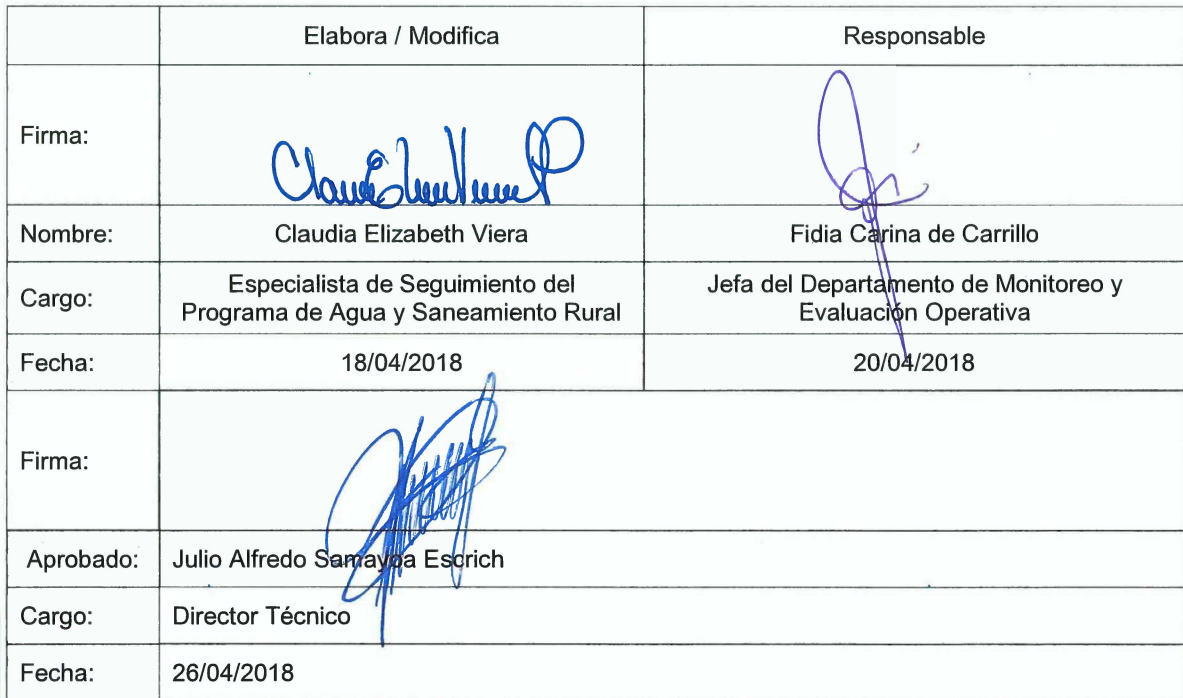 Elabora / Modifica
Responsable
Firma:
Nombre:
Claudia Elizabeth Viera
Fidia Carina de Carrillo
Cargo:
Especialista de Seguimiento del
Programa de Agua y Saneamiento Rural
Jefa del Departamento de Monitoreo y
Evaluación Operativa
Fecha:
18/04/2018
20/04/2018
Firma:
Aprobado:
Julio Alfredo Samayoa Escrich
Cargo:
Director Técnico
Fecha:
26/04/2018